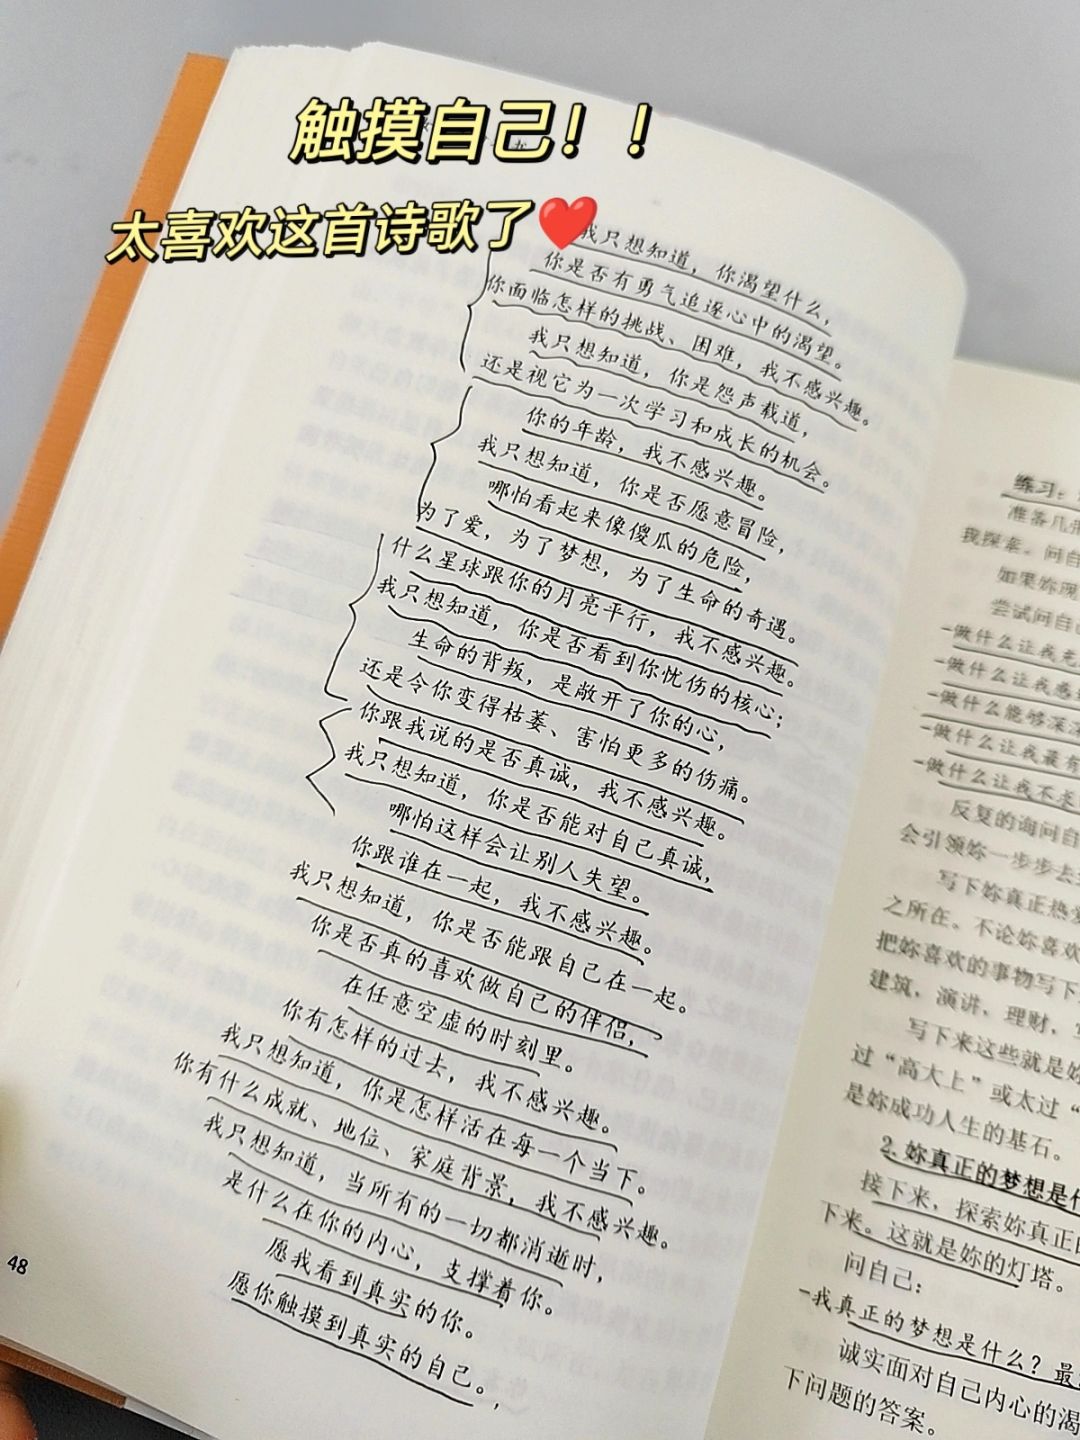 触摸自己！！
太喜欢这首诗歌了
我只想知道，你渴望什么，
你是否有勇气追逐心中的渴望。
你面临怎样的挑战、困难，我不感兴趣。
我只想知道，你是怨声载道，
还是视它为一次学习和成长的机会。
你的年龄，我不感兴趣。
我只想知道，你是否愿意冒险，
哪怕看起来像傻瓜的危险，
为了爱，为了梦想，为了生命的奇遇。
什么星球跟你的月亮平行，我不感兴趣。
我只想知道，你是否看到你忧伤的核心；
生命的背叛，是敞开了你的心，
还是令你变得枯萎、害怕更多的伤痛。
你跟我说的是否真诚，我不感兴趣。
我只想知道，你是否能对自己真诚，
哪怕这样会让别人失望。
你跟谁在一起，我不感兴趣。
我只想知道，你是否能跟自己在一起。
你是否真的喜欢做自己的伴侣，
在任意空虚的时刻里。
你有怎样的过去，我不感兴趣。
我只想知道，你是怎样活在每一个当下。
你有什么成就、地位、家庭背景，我不感兴趣。
我只想知道，当所有的一切都消逝时，
是什么在你的内心，支撑着你。
愿我看到真实的你。
愿你触摸到真实的自己。
48
练习：
准备几张
我探索。问自
如果妳现
尝试问自己
-做什么让我充
-做什么让我感
-做什么能够深深
-做什么让我最有
-做什么让我不
反复的询问自
会引领妳一步步去
写下妳真正热爱
之所在。不论妳喜欢
把妳喜欢的事物写下
建筑，演讲，理财，
写下来这些就是妳
过“高大上”或太过“
是妳成功人生的基石。
2. 妳真正的梦想是什
接下来，探索妳真正的
下来。这就是妳的灯塔。
问自己：
-我真正的梦想是什么？最
诚实面对自己内心的渴
下问题的答案。